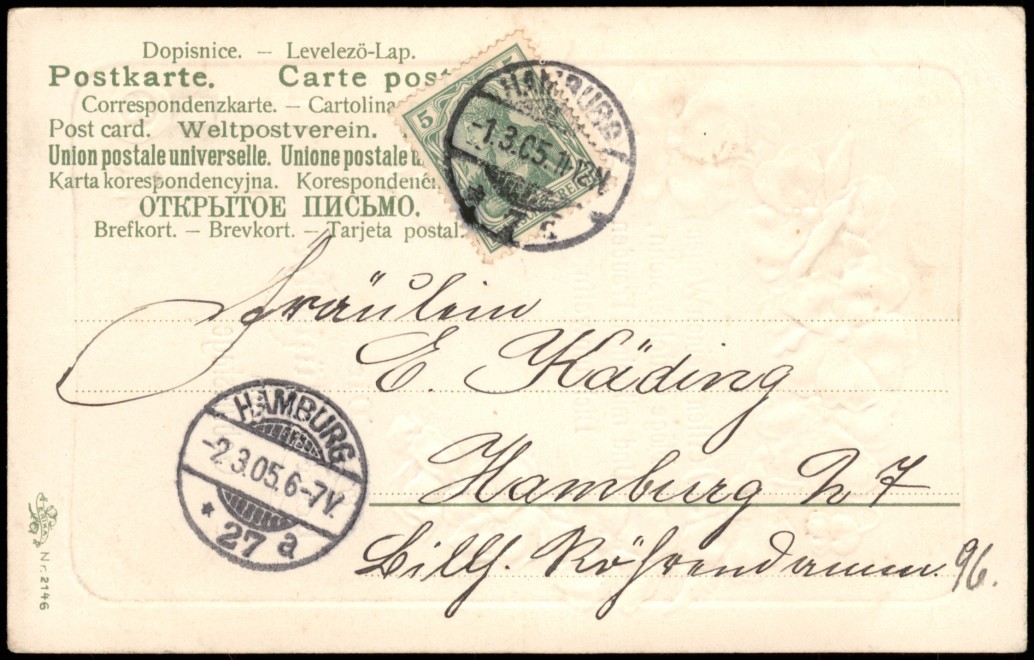 Dopisnice. – Levelezö-Lap.
Postkarte. Carte post
Correspondenzkarte. – Cartolina
Post card. Weltpostverein.
Union postale universelle. Unione postale u
Karta korespondencyjna. Korespondenčn
ОТКРЫТОЕ ПИСЬМО.
Brefkort. – Brevkort. – Tarjeta postal.
5
HAMBURG
-1.3.05.11-12V
Fräulein
E. Käding
Hamburg
Billh. Röhrendamm. 96.
HAMBURG
-2.3.05.6-7V.
* 27 a
ERIKA
Nr. 2146